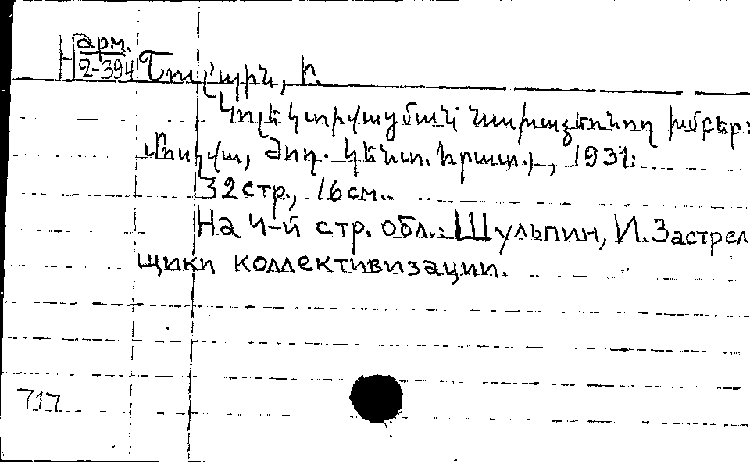 Н арм.
2-394 Շուլպին, Ի.
Կոլեկտիվացման նախաձեռնող խմբեր:
Մոսկվա, Ժող. Կենտ. հրատ., 1931:
32 стр., 16 см.
На 4-й стр. обл.: Шульпин, И. Застрел
щики коллективизации.
717